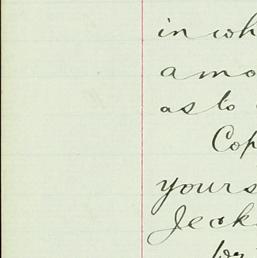 in wh
a mo
as to
Cop
yours
Jeck